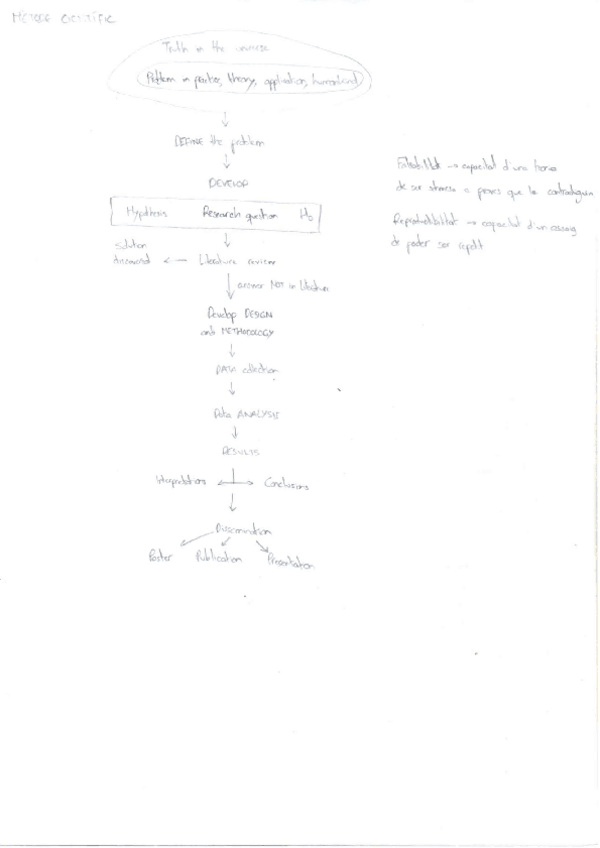 MÈTODE CIENTÍFIC
Truth in the universe
Problem in practice, theory, application, humankind
DEFINE the problem
DEVELOP
Hypothesis Research question H₀
solution
discovered ← Literature review
answer NOT in literature
Develop DESIGN
and METHODOLOGY
DATA collection
Data ANALYSIS
RESULTS
Interpretations ← → Conclusions
Dissemination
Poster Publication Presentation
Falsabilitat → capacitat d'una teoria
de ser sotmesa a proves que la contradiguin
Reproductibilitat → capacitat d'un assaig
de poder ser repetit